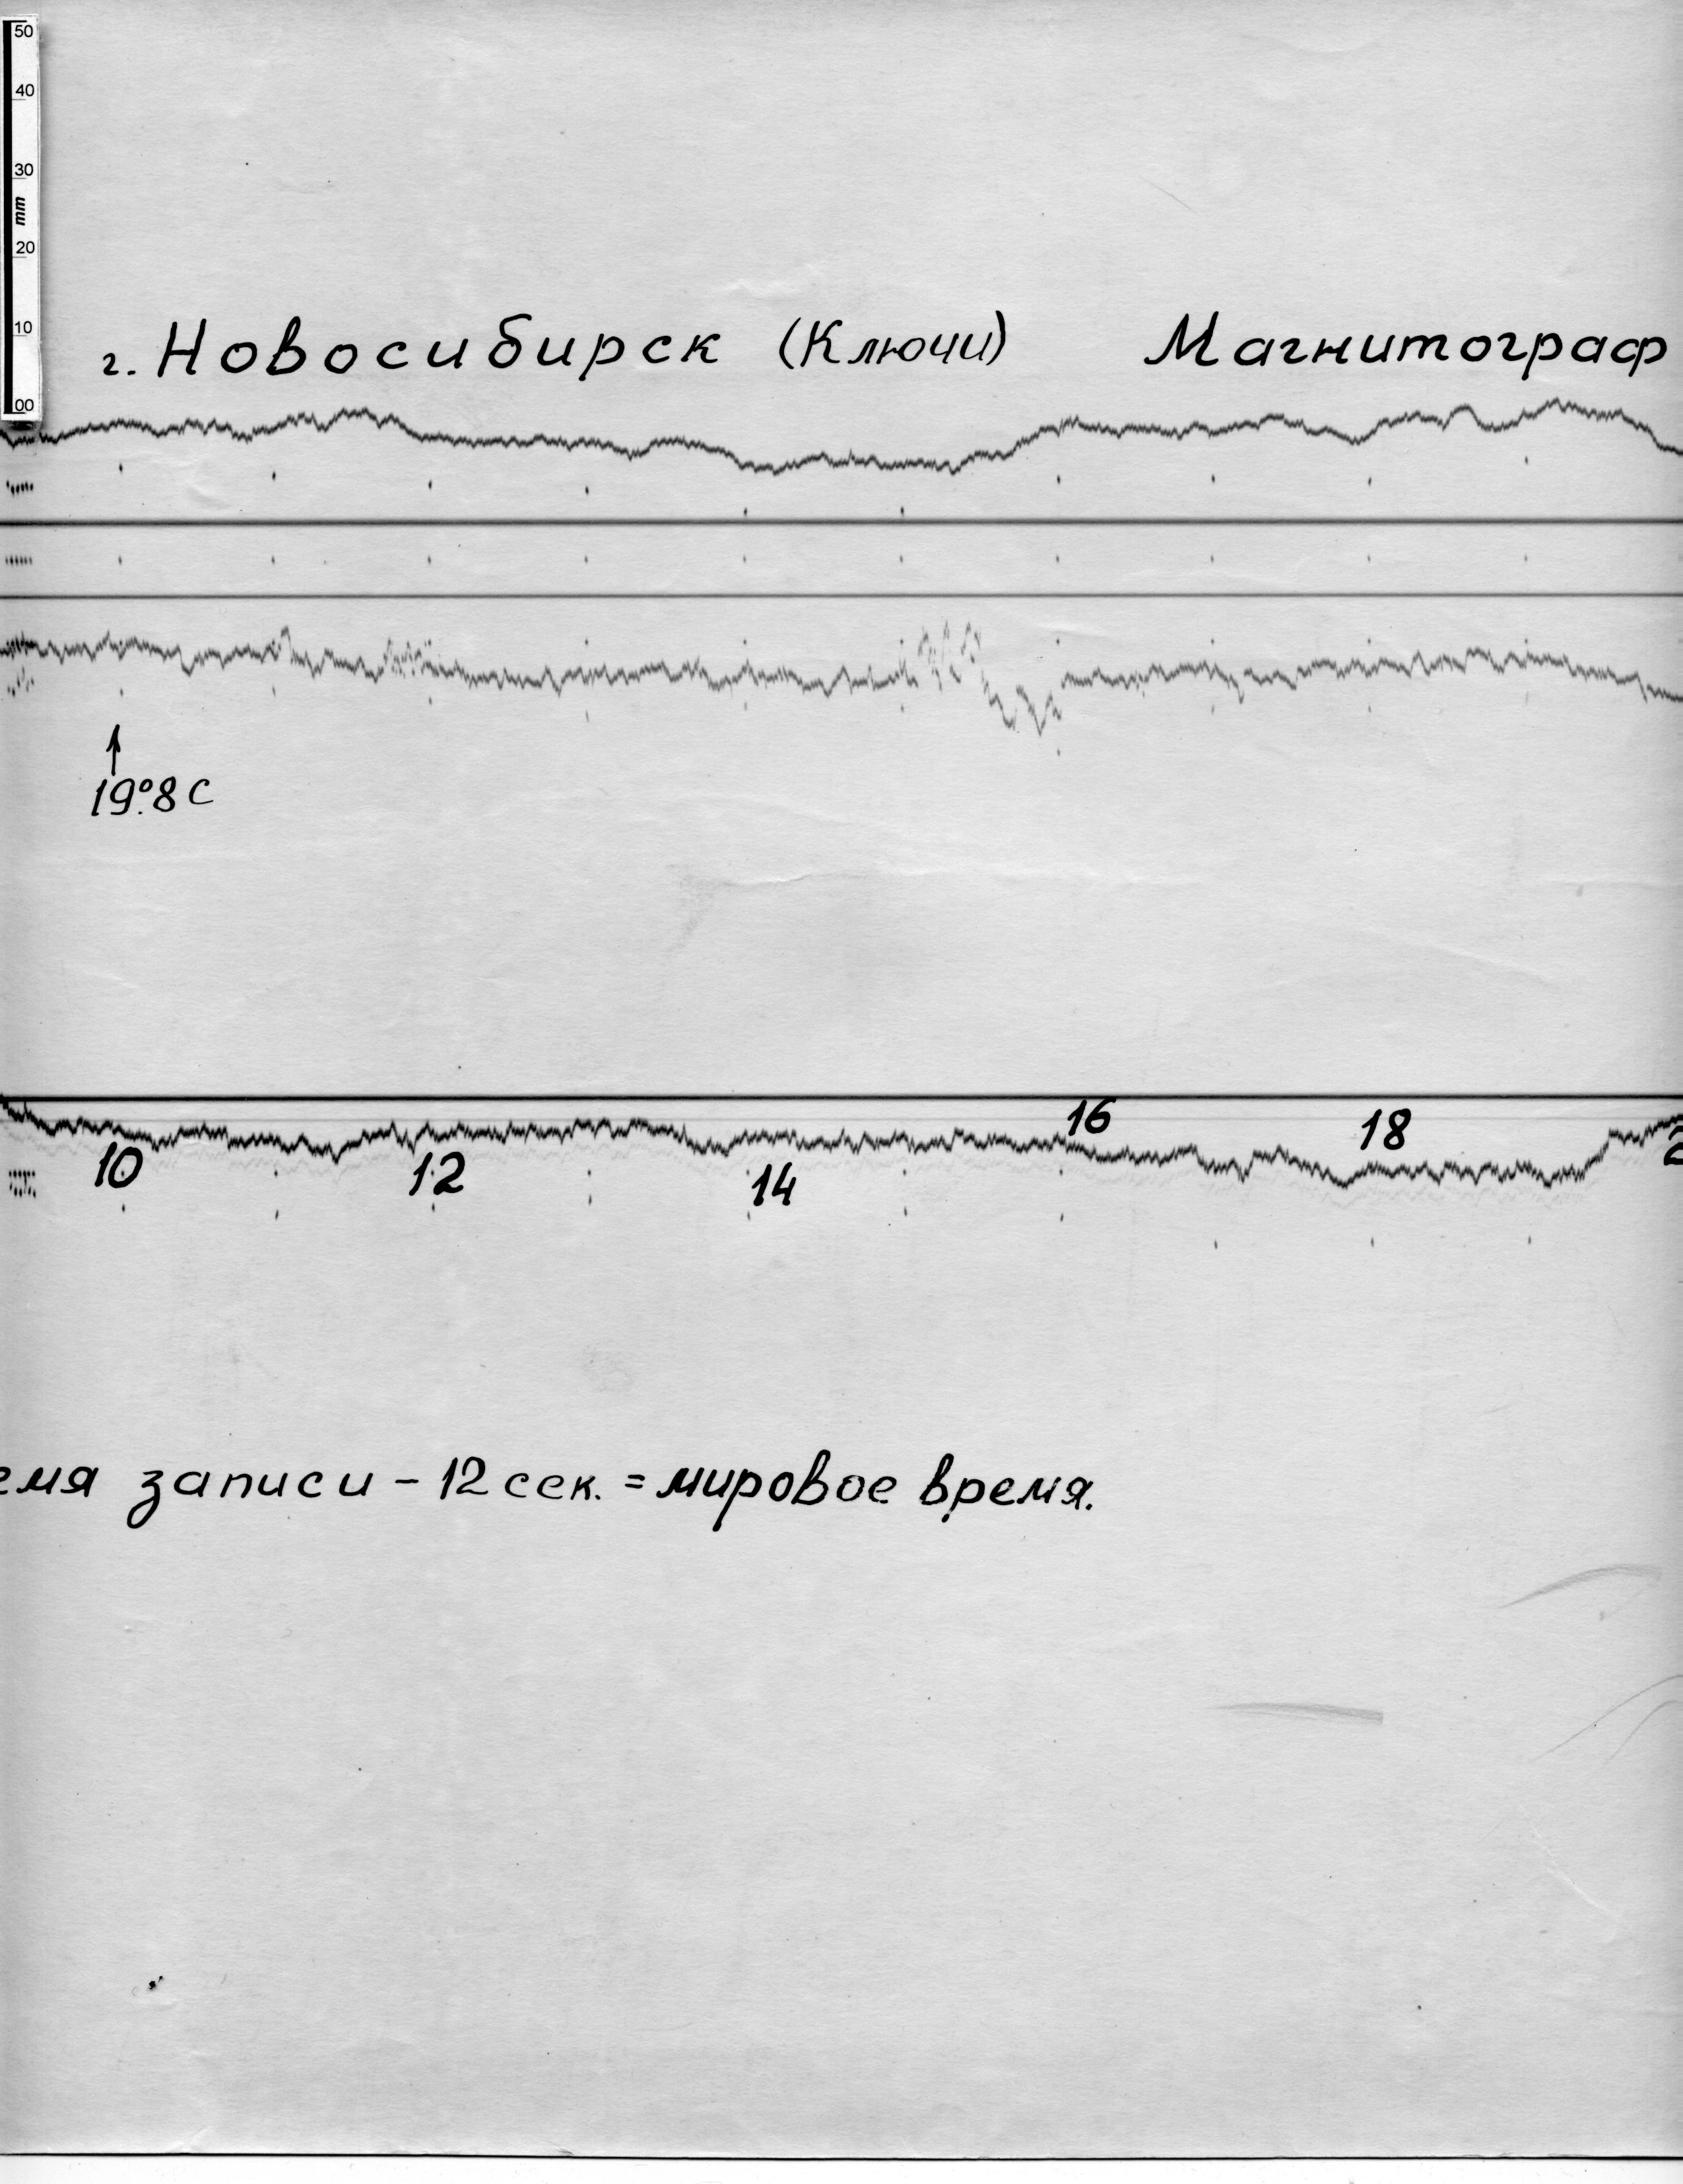 50
40
30
mm
20
10
00
г. Новосибирск (Ключи) Магнитограф
19°.8 С
16
18
10
12
14
2
емя записи - 12 сек. = мировое время.